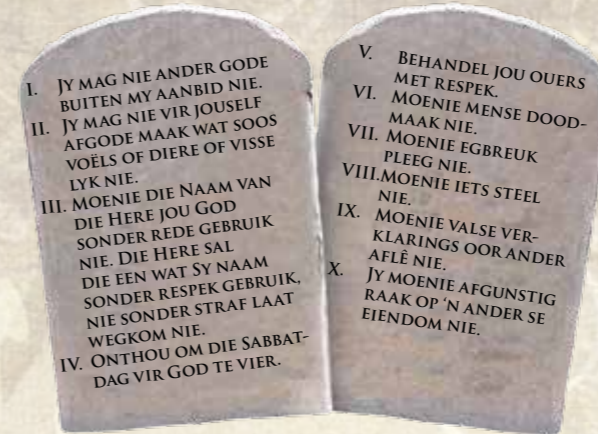 I. JY MAG NIE ANDER GODE
BUITEN MY AANBID NIE.
II. JY MAG NIE VIR JOUSELF
AFGODE MAAK WAT SOOS
VOËLS OF DIERE OF VISSE
LYK NIE.
III. MOENIE DIE NAAM VAN
DIE HERE JOU GOD
SONDER REDE GEBRUIK
NIE. DIE HERE SAL
DIE EEN WAT SY NAAM
SONDER RESPEK GEBRUIK,
NIE SONDER STRAF LAAT
WEGKOM NIE.
IV. ONTHOU OM DIE SABBAT-
DAG VIR GOD TE VIER.
V. BEHANDEL JOU OUERS
MET RESPEK.
VI. MOENIE MENSE DOOD-
MAAK NIE.
VII. MOENIE EGBREUK
PLEEG NIE.
VIII.MOENIE IETS STEEL
NIE.
IX. MOENIE VALSE VER-
KLARINGS OOR ANDER
AFLÊ NIE.
X. JY MOENIE AFGUNSTIG
RAAK OP ‘N ANDER SE
EIENDOM NIE.